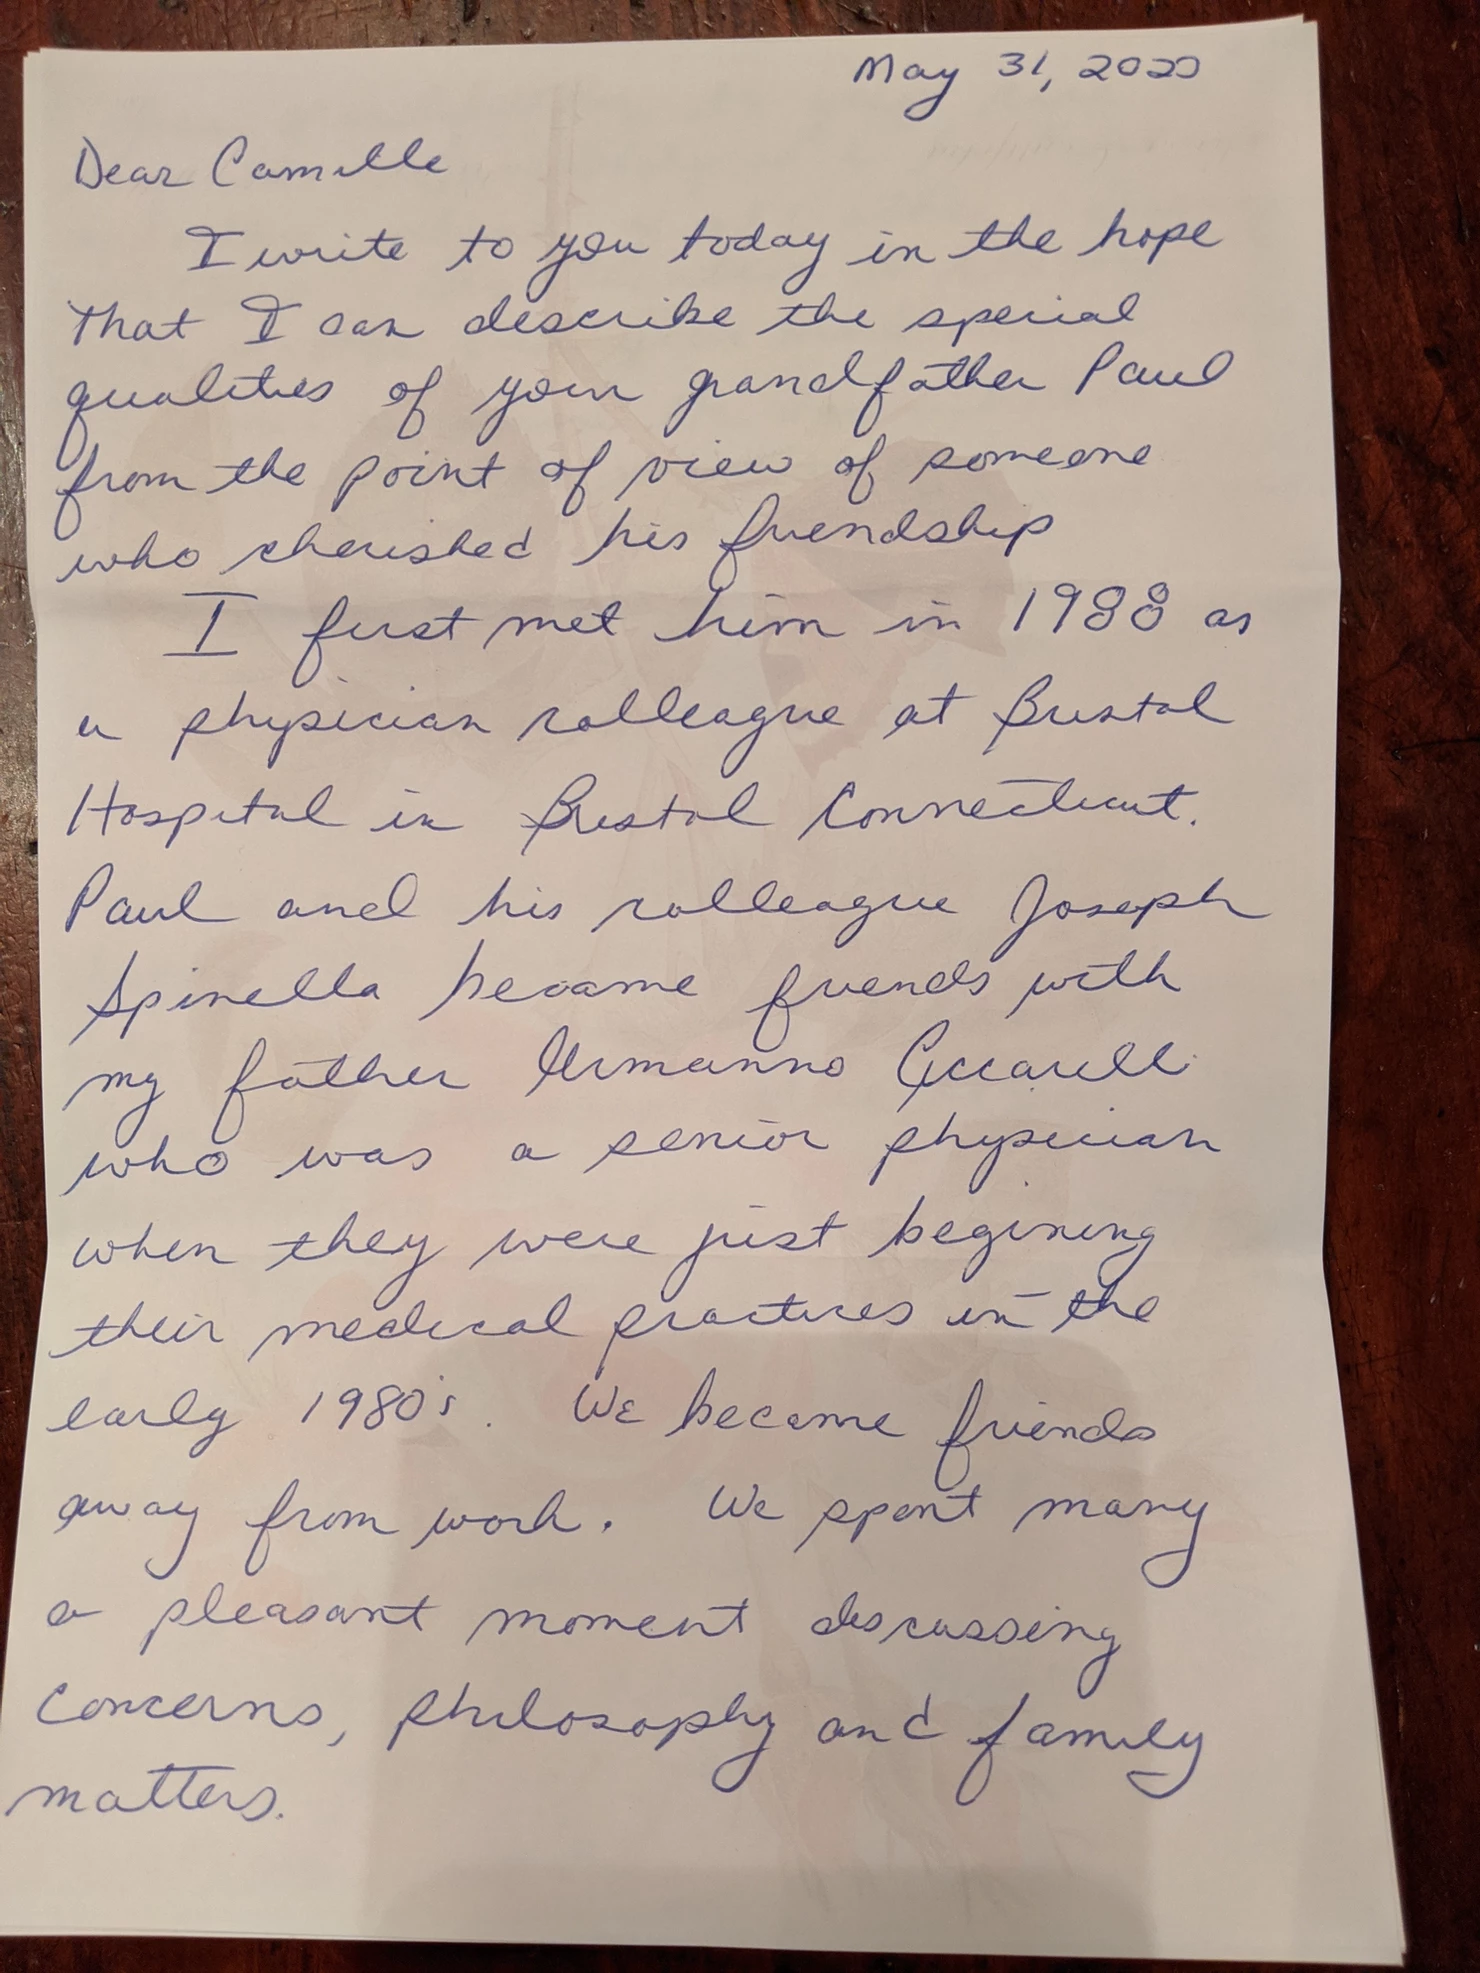 May 31, 2020
Dear Camille
I write to you today in the hope
that I can describe the special
qualities of your grandfather Paul
from the point of view of someone
who cherished his friendship
I first met him in 1988 as
a physician colleague at Bristol
Hospital in Bristol Connecticut.
Paul and his colleague Joseph
Spinella became friends with
my father Ermanno Ceccarelli
who was a senior physician
when they were just begining
their medical practices in the
early 1980's. We became friends
away from work. We spent many
a pleasant moment discussing
concerns, philosophy and family
matters.